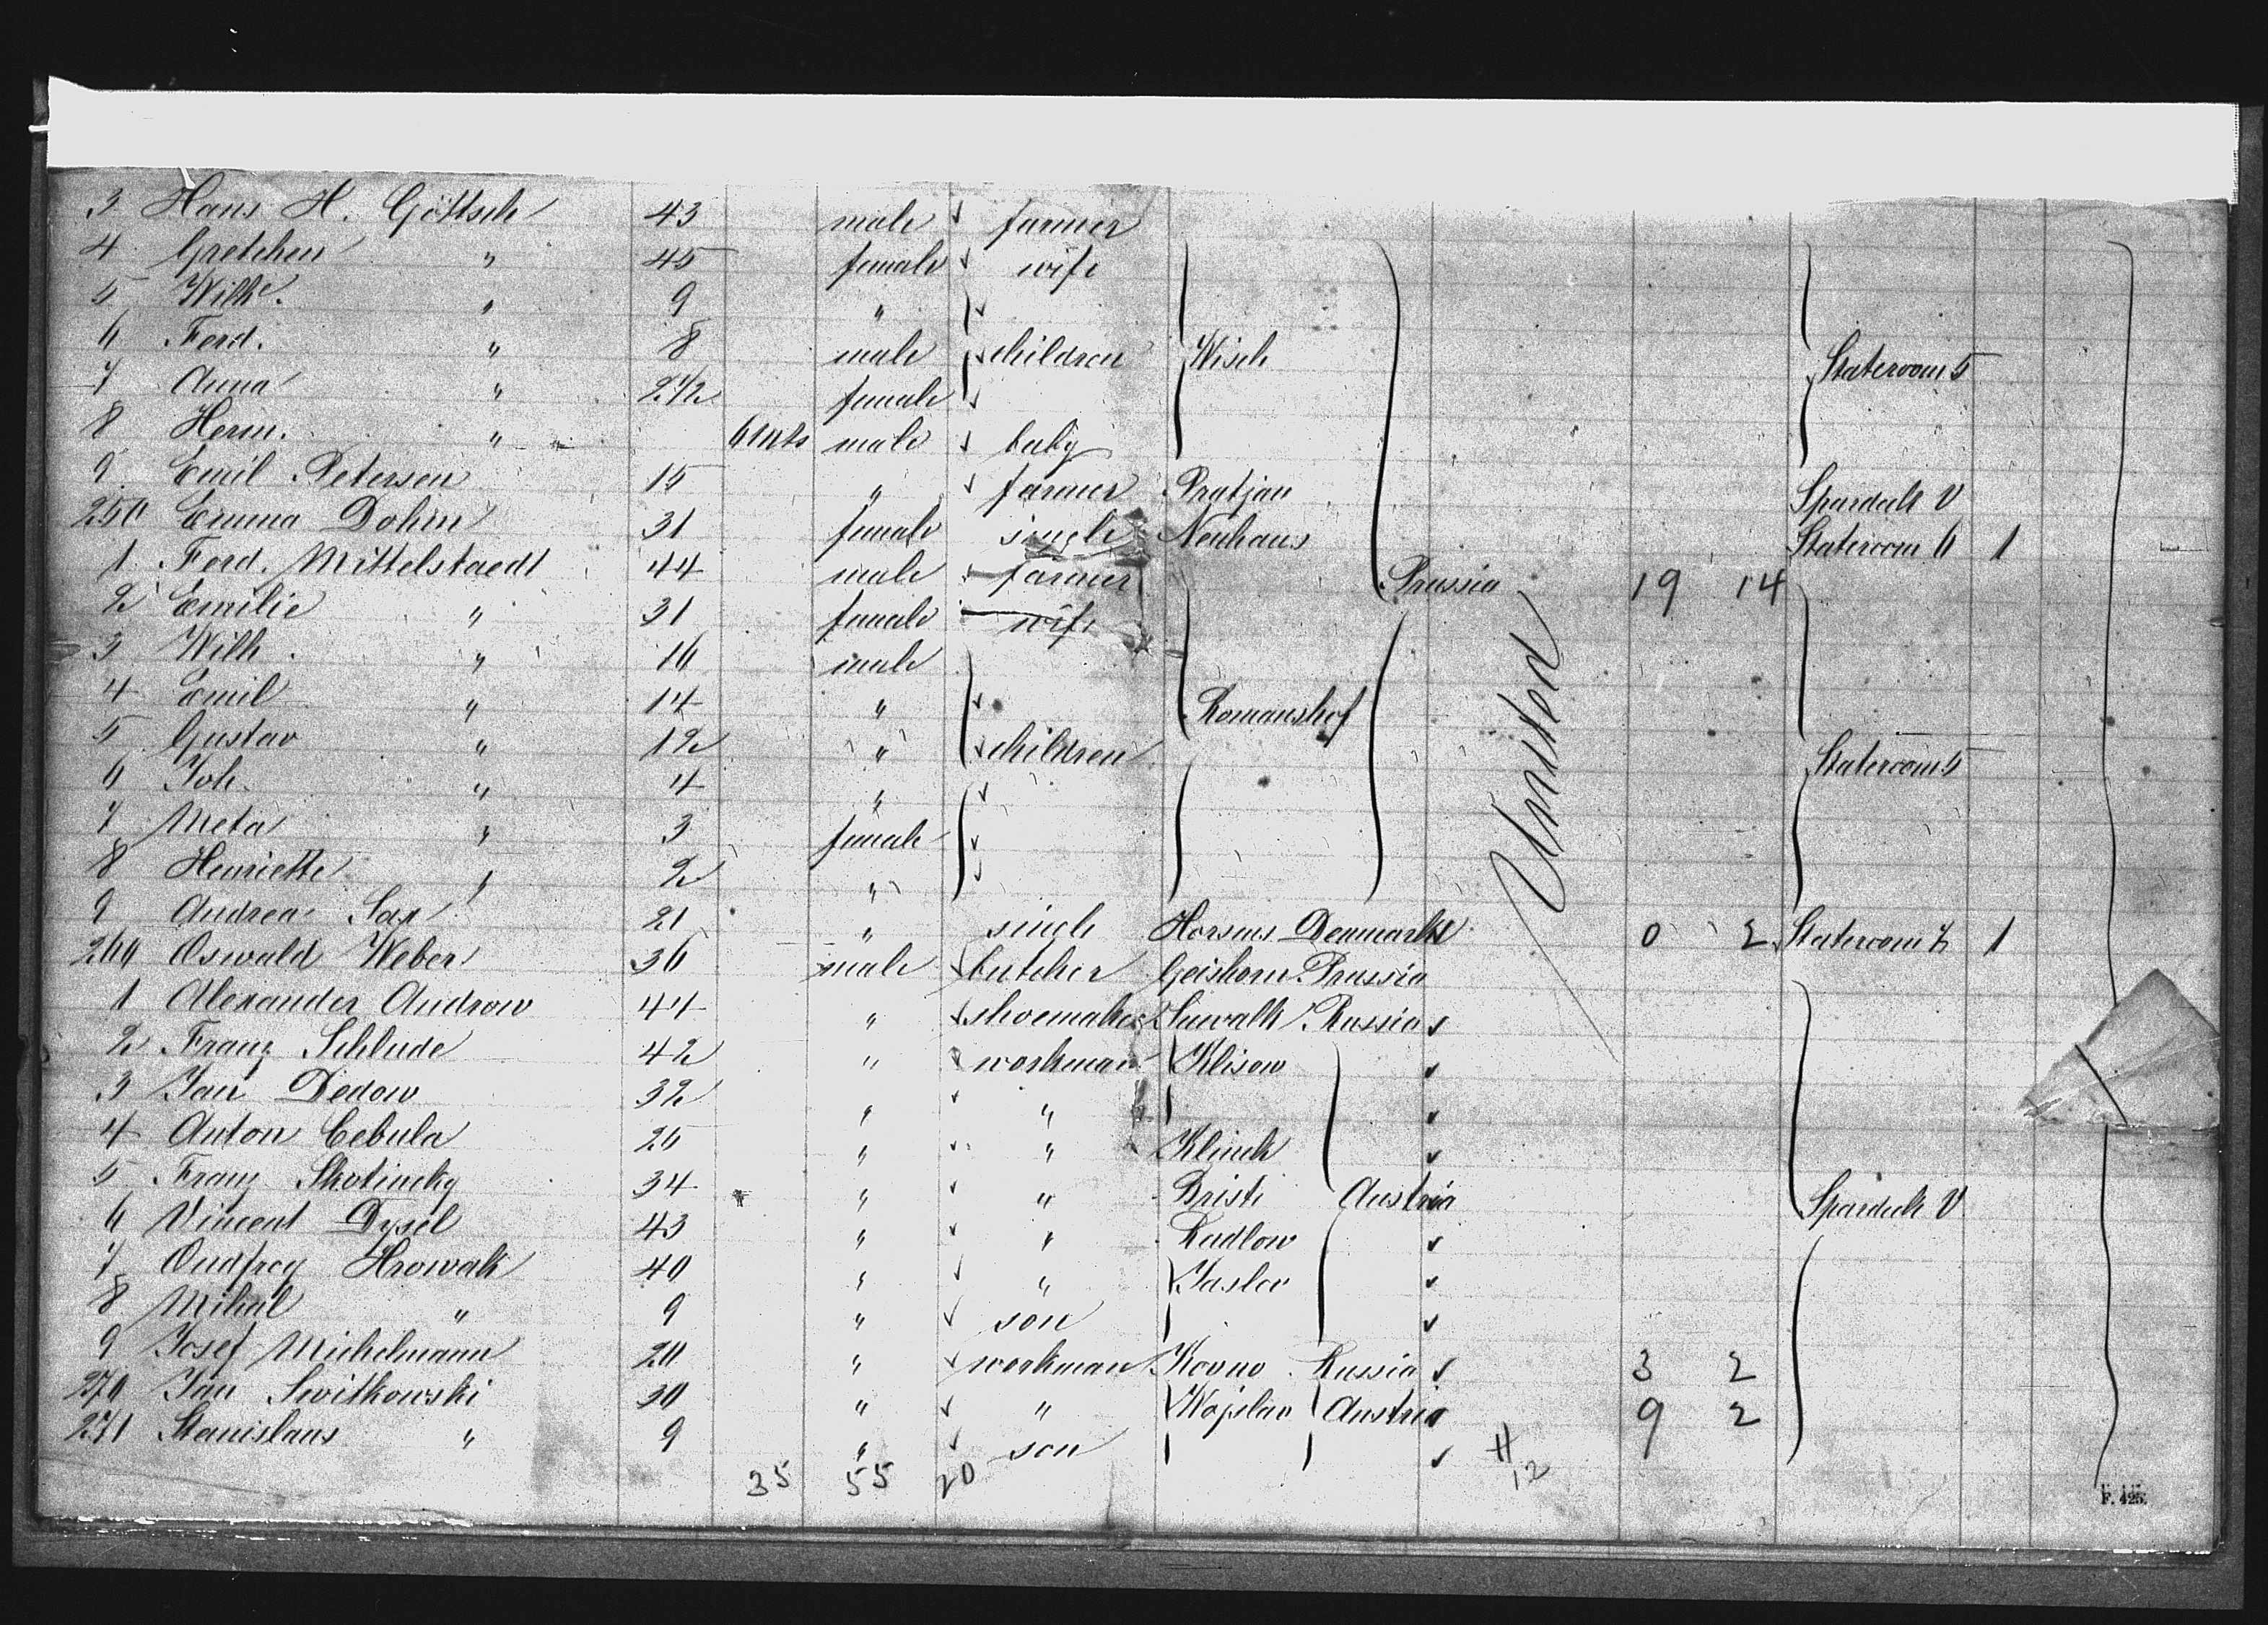 3 Hans H. Göttsch 43 male farmer
4 Gretchen " 45 female wife
5 Wilh. " 9 "
6 Ferd. " 8 male children Wisch Stateroom 5
7 Anna " 2 1/2 female
8 Herm. " 6 mts male baby
9 Emil Petersen 15 " farmer Pratjau Spardeck V
250 Emma Dohrn 31 female single Neuhaus Stateroom 6 1
1 Ferd. Mittelstaedt 44 male farmer Prussia 19 14
2 Emilie " 31 female wife
3 Wilh. " 16 male United
4 Emil " 14 " Romanshof
5 Gustav " 12 " children Stateroom 5
6 Joh. " 4 "
7 Meta " 3 female
8 Henriette " 2 "
9 Andrea Sax 21 " single Horsens Denmark 0 2 Stateroom 7 1
260 Oswald Weber 36 male butcher Geishorn Prussia
1 Alexander Androw 44 " shoemaker Suwalk Russia
2 Franz Schlude 42 " workman Klisow
3 Jan Dedow 32 " "
4 Anton Cebula 25 " "
5 Franz 34 " " Austria Spardeck V
6 Vincent Dysel 43 " " Radlow
7 Hrowak 40 " " Jaslov
8 Mihal " 9 " son
9 Josef Michelmann 20 " workman Kovno Russia 3 2
270 Jan Switkowski 30 " " Wojslav Austria 9 2
271 Stanislaus " 9 " son
35 55 20 12
F. 425.